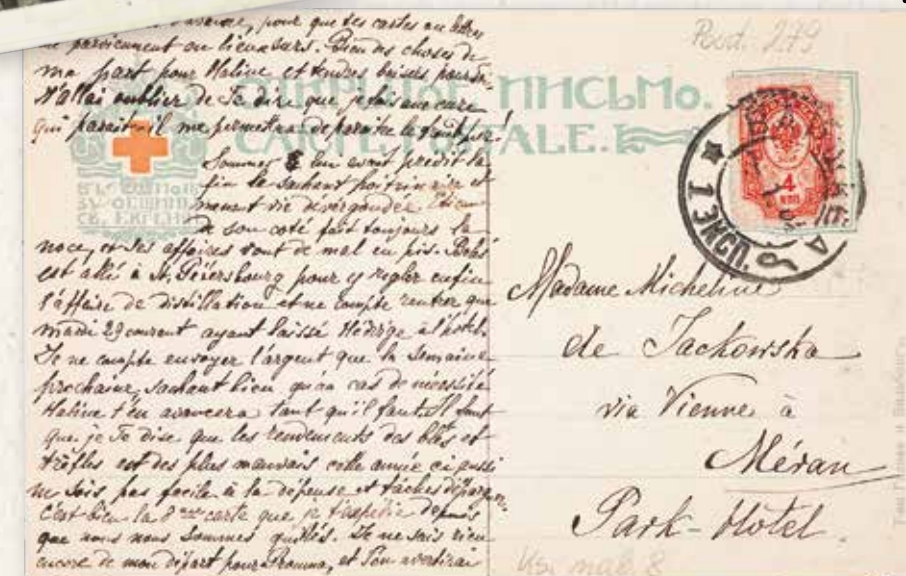 d'avance, pour que tes cartes ou lettres
me parviennent en lieux surs. Bien des choses de
ma part pour Haline, et tendres baisers pour toi.
N'allai oublier de Te dire que je fais une cure
qui parait-il me permettra de paraitre le
Sommer & lui avait predit sa
fin la sachant poitrinaire et
menant vie dévergondée.
de son coté fait toujours la
noce, et ses affaires vont de mal en pis.
est allé à St. Pétersbourg pour y regler enfin
l'affaire de distillation et ne compte rentrer que
mardi 29 courant ayant laissé Hedwige à l'hotel.
Je ne compte envoyer l'argent que la semaine
prochaine, sachant bien qu'en cas de nécessité
Haline t'en avancera tant qu'il faut. Il faut
que je Te dise que les rendements des blés et
trèfles est des plus mauvais cette année ci aussi
ne sois pas facile à la dépense et taches
c'est bien la 8 me carte que je t'expédie depuis
que nous nous sommes quittés. Je ne sais rien
encore de mon départ pour et t'en avertirai
ОТКРЫТОЕ ПИСЬМО.
CARTE POSTALE.
В ПОЛЬЗУ ОБЩИНЫ
СВ. ЕВГЕНІИ
Pocit. 279
4
КОП
★ 1 ЭКСП.
Madame Micheline
de Jackowska
via Vienne à
Méran
Park-Hôtel.
8